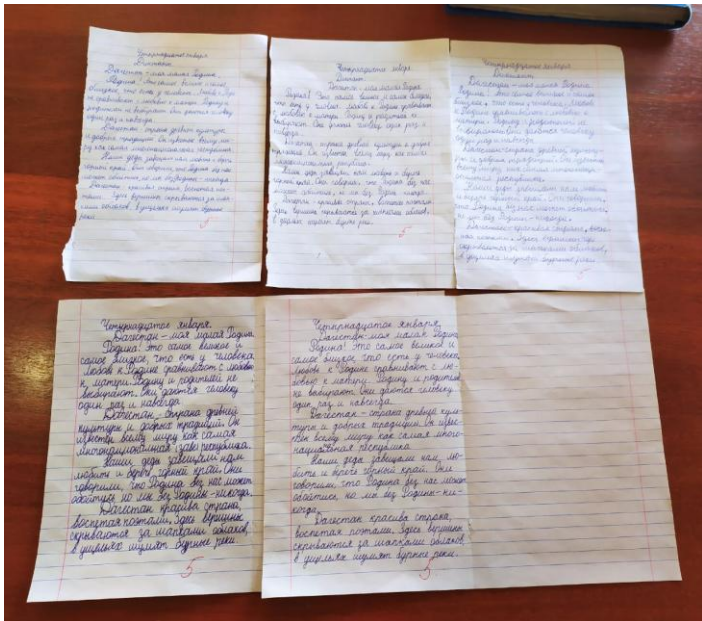 Четырнадцатое января.
Диктант.
Дагестан – моя малая Родина.
Родина! Это самое
что есть у
с любовью к матери. Родину и
родителей не выбирают. Они даются человеку
один раз и навсегда.
Дагестан – страна древней культуры
и добрых традиций. Он известен всему ми-
ру как самая многонациональная республика.
Наши деды завещали нам любить и беречь
горный край. Они говорили, что Родина без нас
может обойтись, но мы без Родины – никогда.
Дагестан – красивая страна, воспетая поэ-
тами. Здесь вершины скрываются за шап-
ками облаков, в ущельях шумят бурные
реки.
5
Четырнадцатое января.
Диктант.
Дагестан – моя малая Родина.
Родина! Это самое великое и самое близкое,
что есть у человека. Любовь к Родине сравнивают
с любовью к матери. Родину и родителей не
выбирают. Они даются человеку один раз и
навсегда.
Дагестан – страна древней культуры и добрых
традиций. Он известен всему миру как самая
многонациональная республика.
Наши деды завещали нам любить и беречь
горный край. Они говорили, что Родина без нас
может обойтись, но мы без Родины – никогда.
Дагестан – красивая страна, воспетая поэтами.
Здесь вершины скрываются за шапками облаков,
в ущельях шумят бурные реки.
5
Четырнадцатое января.
Диктант.
Дагестан – моя малая Родина.
Родина! Это самое великое и самое
близкое, что есть у человека. Любовь
к Родине сравнивают с любовью к
матери. Родину и родителей не
выбирают. Они даются человеку
один раз и навсегда.
Дагестан – страна древней культу-
ры и добрых традиций. Он известен
всему миру как самая многонацио-
нальная республика.
Наши деды завещали нам любить
и беречь горный край. Они говорили,
что Родина без нас может обойтись,
но мы без Родины – никогда.
Дагестан – красивая страна, воспе-
тая поэтами. Здесь вершины
скрываются за шапками облаков,
в ущельях шумят бурные реки.
5
Четырнадцатое января.
Дагестан – моя малая Родина.
Родина! Это самое великое и
самое близкое, что есть у человека.
Любовь к Родине сравнивают с любовью
к матери. Родину и родителей не
выбирают. Они даются человеку
один раз и навсегда.
Дагестан – страна древней
культуры и добрых традиций. Он
известен всему миру как самая
многонациональная республика.
Наши деды завещали нам
любить и беречь горный край. Они
говорили, что Родина без нас может
обойтись но мы без Родины – никогда.
Дагестан красивая страна,
воспетая поэтами. Здесь вершины
скрываются за шапками облаков,
в ущельях шумят бурные реки.
5
Четырнадцатое января.
Дагестан – моя малая Родина.
Родина! Это самое великое и
самое близкое, что есть у человека.
Любовь к Родине сравнивают с лю-
бовью к матери. Родину и родителей
не выбирают. Они даются человеку
один раз и навсегда.
Дагестан – страна древней куль-
туры и добрых традиций. Он извес-
тен всему миру как самая много-
национальная республика.
Наши деды завещали нам, лю-
бить и беречь горный край. Они
говорили что Родина без нас может
обойтись, но мы без Родины – ни-
когда.
Дагестан красивая страна,
воспетая поэтами. Здесь вершины
скрываются за шапками облаков
в ущельях шумят бурные реки.
5